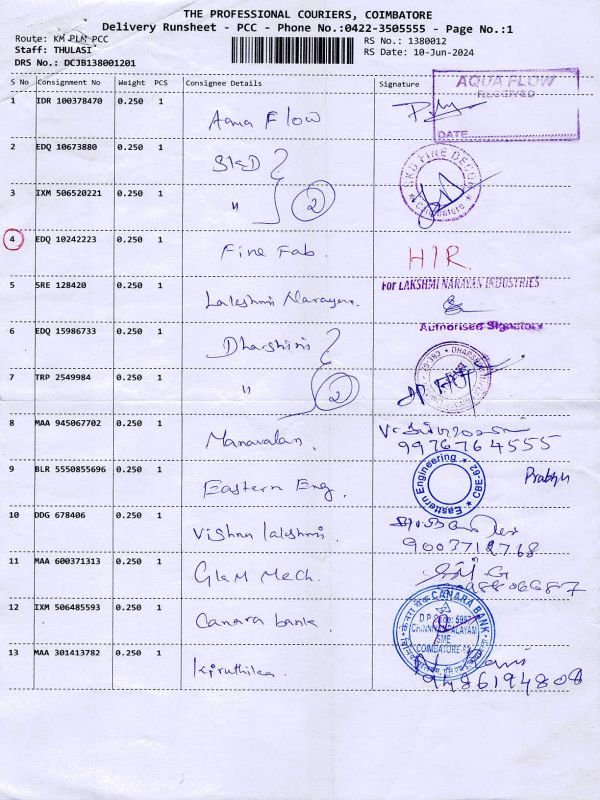 THE PROFESSIONAL COURIERS, COIMBATORE
Delivery Runsheet - PCC - Phone No.:0422-3505555 - Page No.:1
Route: KM PLM PCC RS No.: 1380012
Staff: THULASI RS Date: 10-Jun-2024
DRS No.: DCJB138001201
S No Consignment No Weight PCS Consignee Details Signature
AQUA FLOW
RECEIVED
DATE
1 IDR 100378470 0.250 1 Aqua Flow
2 EDQ 10673880 0.250 1
3 IXM 506520221 0.250 1 " 2
FINE DECOR
Coimbatore
4 EDQ 10242223 0.250 1 Fine Fab. HIR.
5 SRE 128420 0.250 1 Lakshmi Narayan.
For LAKSHMI NARAYAN INDUSTRIES
Authorised Signatory
6 EDQ 15986733 0.250 1 Dharshini
7 TRP 2549984 0.250 1 " 2
8 MAA 945067702 0.250 1 Manavalan.
9976764555
9 BLR 5550855696 0.250 1 Eastern Eng.
Eastern Engineering * CBE-62 *
Prabhu
10 DDG 678406 0.250 1 Vishnu lakshmi.
11 MAA 600371313 0.250 1 Glam Mech.
12 IXM 506485593 0.250 1 Canara bank.
CANARA BANK
SME
COIMBATORE
13 MAA 301413782 0.250 1 Kiruthika.
9486194808